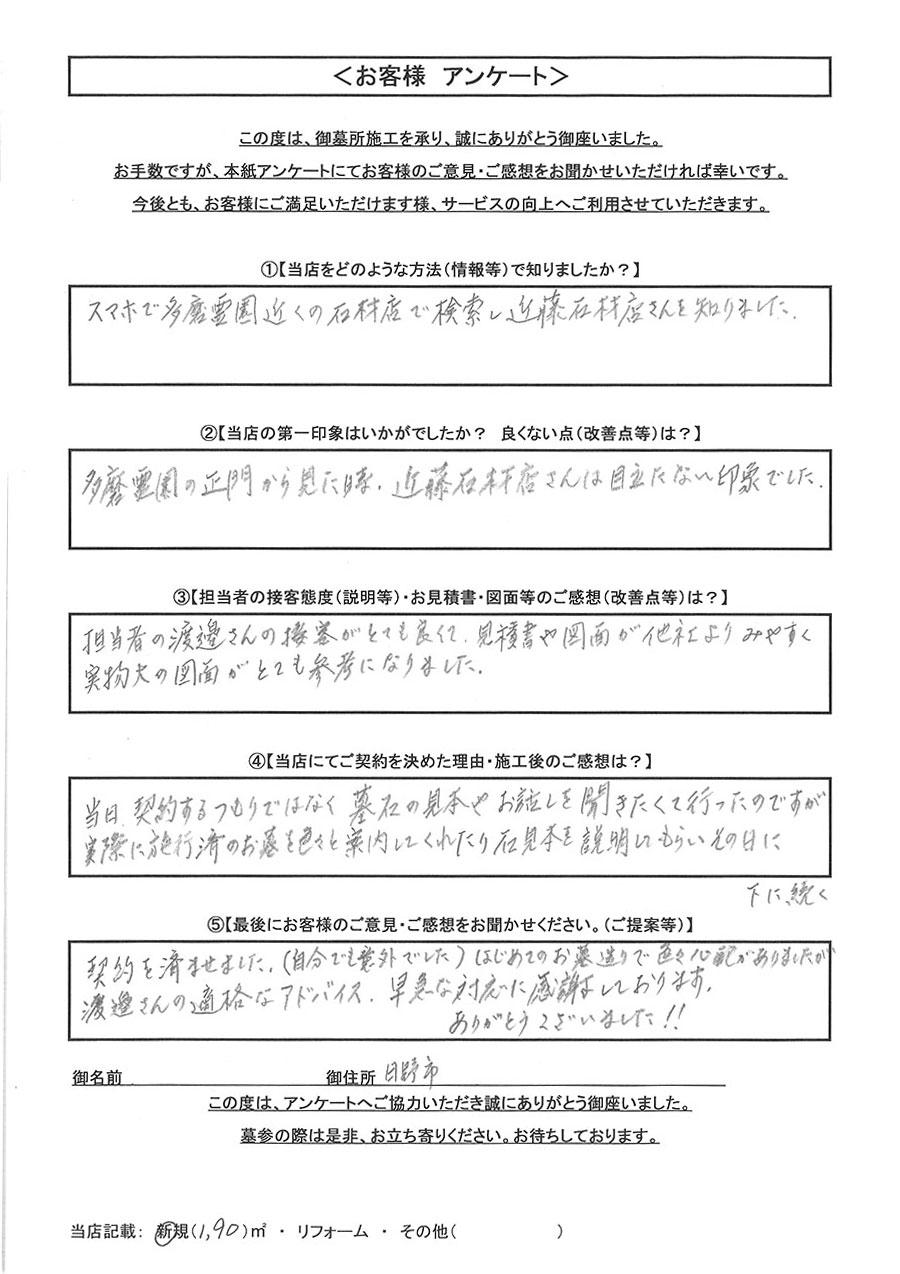 ＜お客様　アンケート＞
この度は、御墓所施工を承り、誠にありがとう御座いました。
お手数ですが、本紙アンケートにてお客様のご意見・ご感想をお聞かせいただければ幸いです。
今後とも、お客様にご満足いただけます様、サービスの向上へご利用させていただきます。
①【当店をどのような方法（情報等）で知りましたか？】
スマホで多磨霊園近くの石材店で検索し近藤石材店さんを知りました.
②【当店の第一印象はいかがでしたか？　良くない点（改善点等）は？】
多磨霊園の正門から見た時、近藤石材店さんは目立たない印象でした.
③【担当者の接客態度（説明等）・お見積書・図面等のご感想（改善点等）は？】
担当者の渡邊さんの接客がとても良くて、見積書や図面が他社よりみやすく
実物大の図面がとても参考になりました.
④【当店にてご契約を決めた理由・施工後のご感想は？】
当日、契約するつもりではなく墓石の見本やお話しを聞きたくて行ったのですが
実際に施行済のお墓を色々と案内してくれたり石見本を説明してもらいその日に
下に続く
⑤【最後にお客様のご意見・ご感想をお聞かせください。（ご提案等）】
契約を済ませました.（自分でも意外でした）はじめてのお墓造りで色々心配がありましたが
渡邊さんの適格なアドバイス、早急な対応に感謝しております.
ありがとうございました!!
御名前　御住所 日野市
この度は、アンケートへご協力いただき誠にありがとう御座いました。
墓参の際は是非、お立ち寄りください。お待ちしております。
当店記載： 新規（1,90）㎡ ・ リフォーム ・ その他（　）